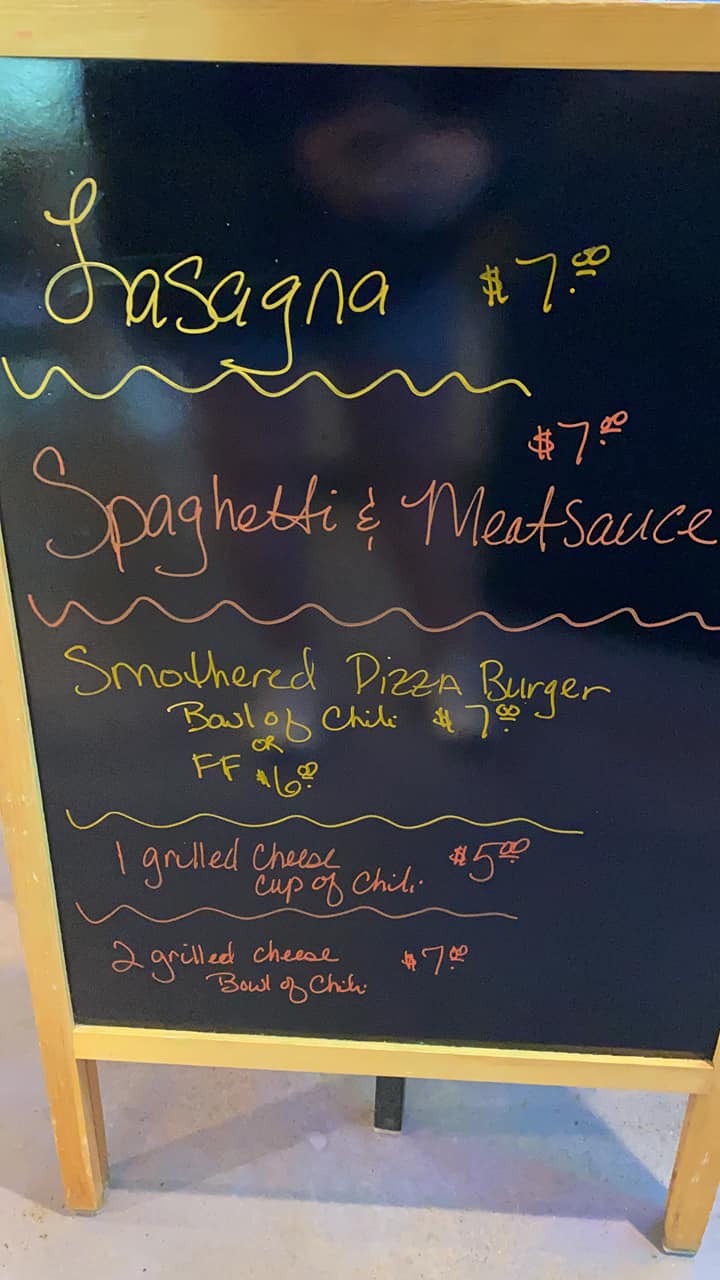 Lasagna $7.00
$7.00
Spaghetti & Meatsauce
Smothered Pizza Burger
Bowl of Chili $7.00
OR
FF $6.00
1 grilled Cheese $5.00
Cup of Chili
2 grilled cheese $7.00
Bowl of Chili